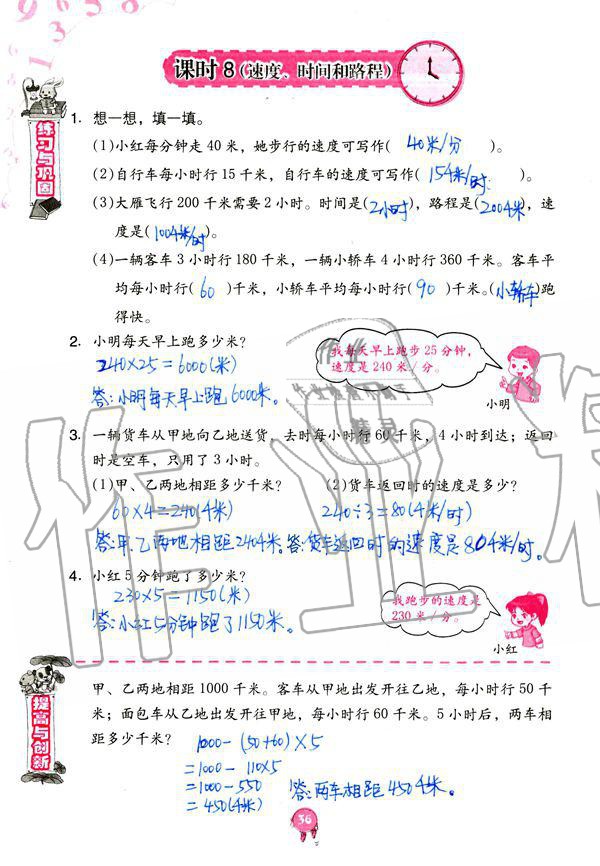 课时8(速度、时间和路程)
练习与巩固
1. 想一想，填一填。
(1)小红每分钟走 40 米，她步行的速度可写作( 40米/分 )。
(2)自行车每小时行 15 千米，自行车的速度可写作( 15千米/时 )。
(3)大雁飞行 200 千米需要 2 小时。时间是(2小时)，路程是(200千米)，速
度是(100千米/时)。
(4)一辆客车 3 小时行 180 千米，一辆小轿车 4 小时行 360 千米。客车平
均每小时行( 60 )千米，小轿车平均每小时行( 90 )千米。(小轿车)跑
得快。
2. 小明每天早上跑多少米？
240×25=6000(米)
答：小明每天早上跑6000米。
我每天早上跑步 25 分钟，
速度是 240 米／分。
小明
3. 一辆货车从甲地向乙地送货，去时每小时行 60 千米，4 小时到达；返回
时是空车，只用了 3 小时。
(1)甲、乙两地相距多少千米？ (2)货车返回时的速度是多少？
60×4=240(千米) 240÷3=80(千米/时)
答：甲、乙两地相距240千米。答：货车返回时的速度是80千米/时。
4. 小红 5 分钟跑了多少米？
230×5=1150(米)
答：小红5分钟跑了1150米。
我跑步的速度是
230 米／分。
小红
提高与创新
甲、乙两地相距 1000 千米。客车从甲地出发开往乙地，每小时行 50 千
米；面包车从乙地出发开往甲地，每小时行 60 千米。5 小时后，两车相
距多少千米？
1000-(50+60)×5
=1000-110×5
=1000-550
=450(千米)
答：两车相距450千米。
36
作业